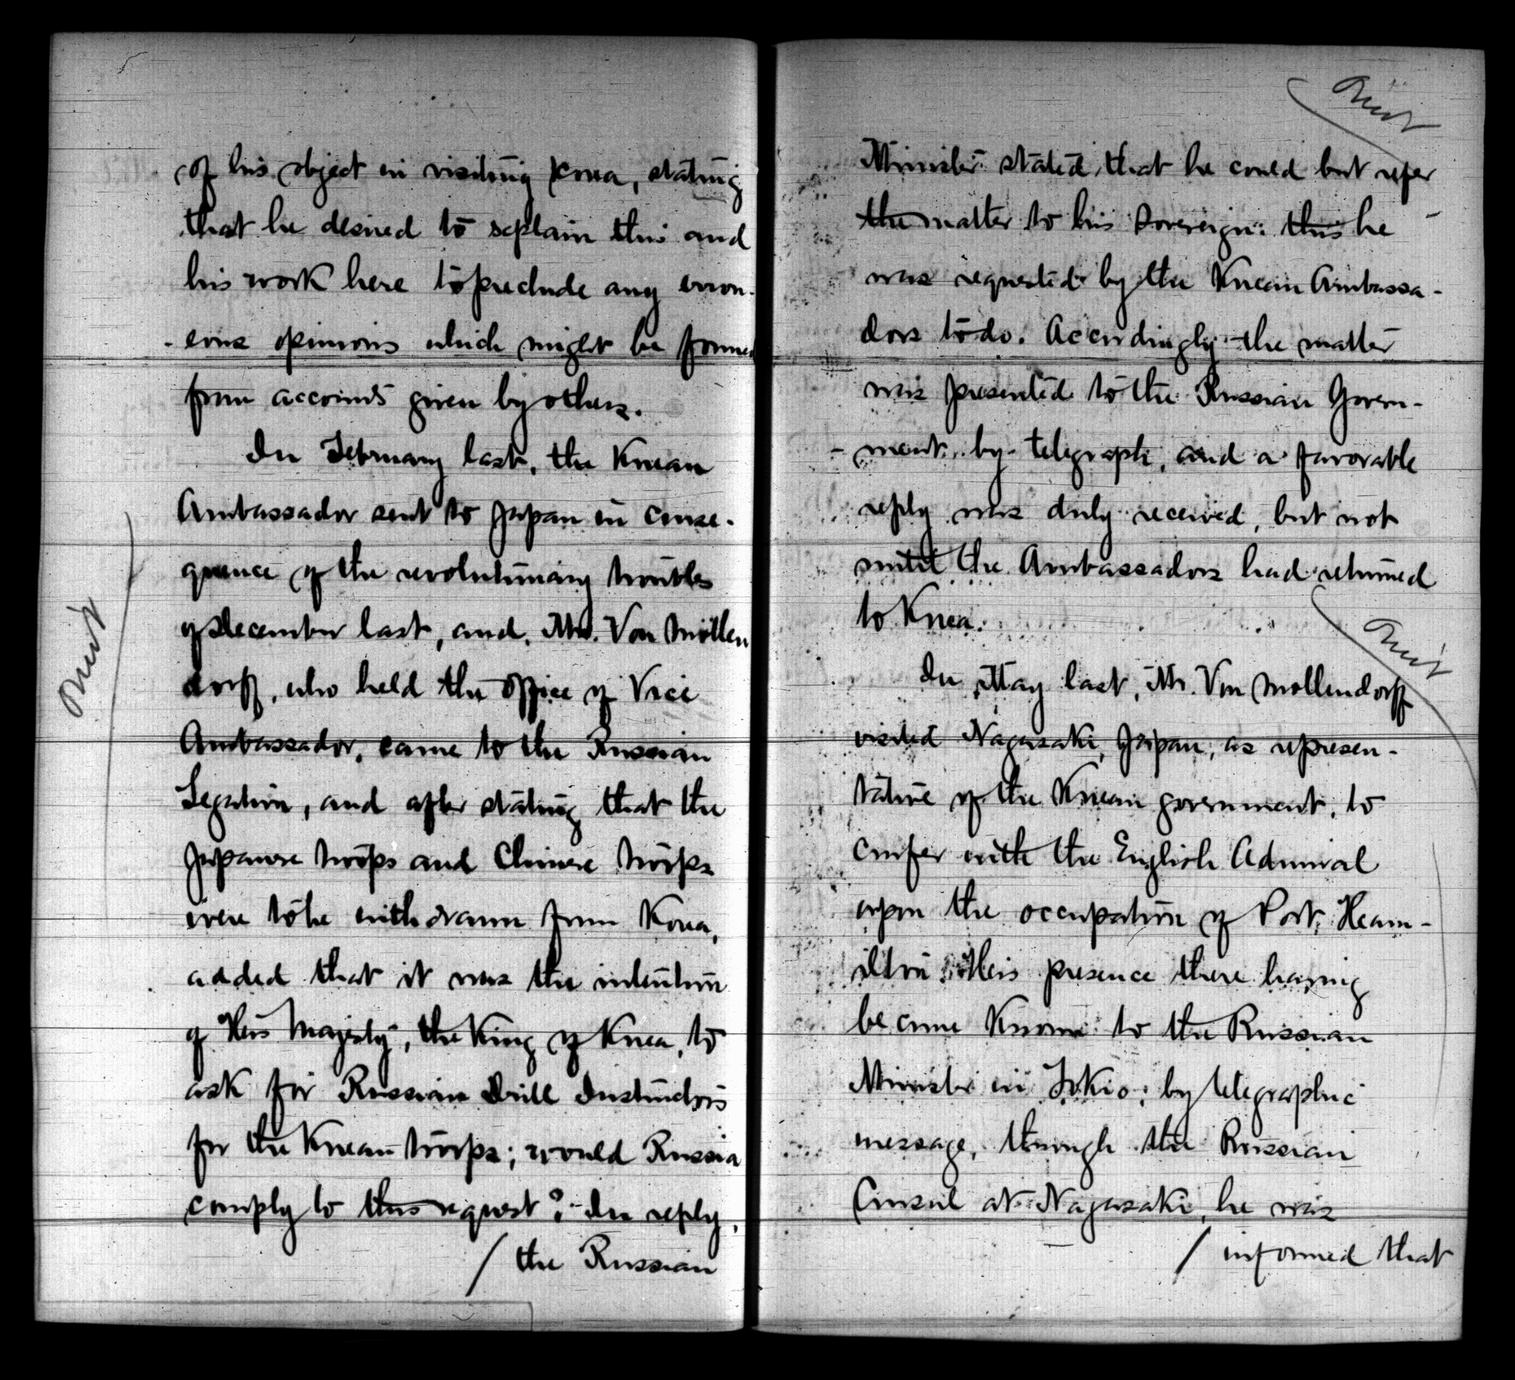 of his object in visiting Korea, stating
that he desired to explain this and
his work here to preclude any erron-
eous opinions which might be formed
from accounts given by others.
In February last, the Korean
Ambassador sent to Japan in conse-
quence of the revolutionary troubles
of December last, and Mr. Von Mollen
dorff, who held the office of Vice
Ambassador, came to the Russian
Legation, and after stating that the
Japanese troops and Chinese troops
were to be withdrawn from Korea,
added that it was the intention
of His Majesty, the King of Korea, to
ask for Russian Drill Instructors
for the Korean troops; would Russia
comply to this request? In reply,
/ the Russian
Omit
Omit
Minister stated that he could but refer
the matter to his Sovereign: this he
was requested by the Korean Ambassa-
dors to do. Accordingly the matter
was presented to the Russian Govern-
ment, by telegraph, and a favorable
reply was duly received, but not
until the Ambassadors had returned
to Korea.
Omit
In May last, Mr. Von Mollendorff
visited Nagasaki, Japan, as represen-
tative of the Korean government, to
confer with the English Admiral
upon the occupation of Port Ham-
ilton. His presence there having
become known to the Russian
Minister in Tokio; by telegraphic
message, through the Russian
Consul at Nagasaki, he was
/ informed that